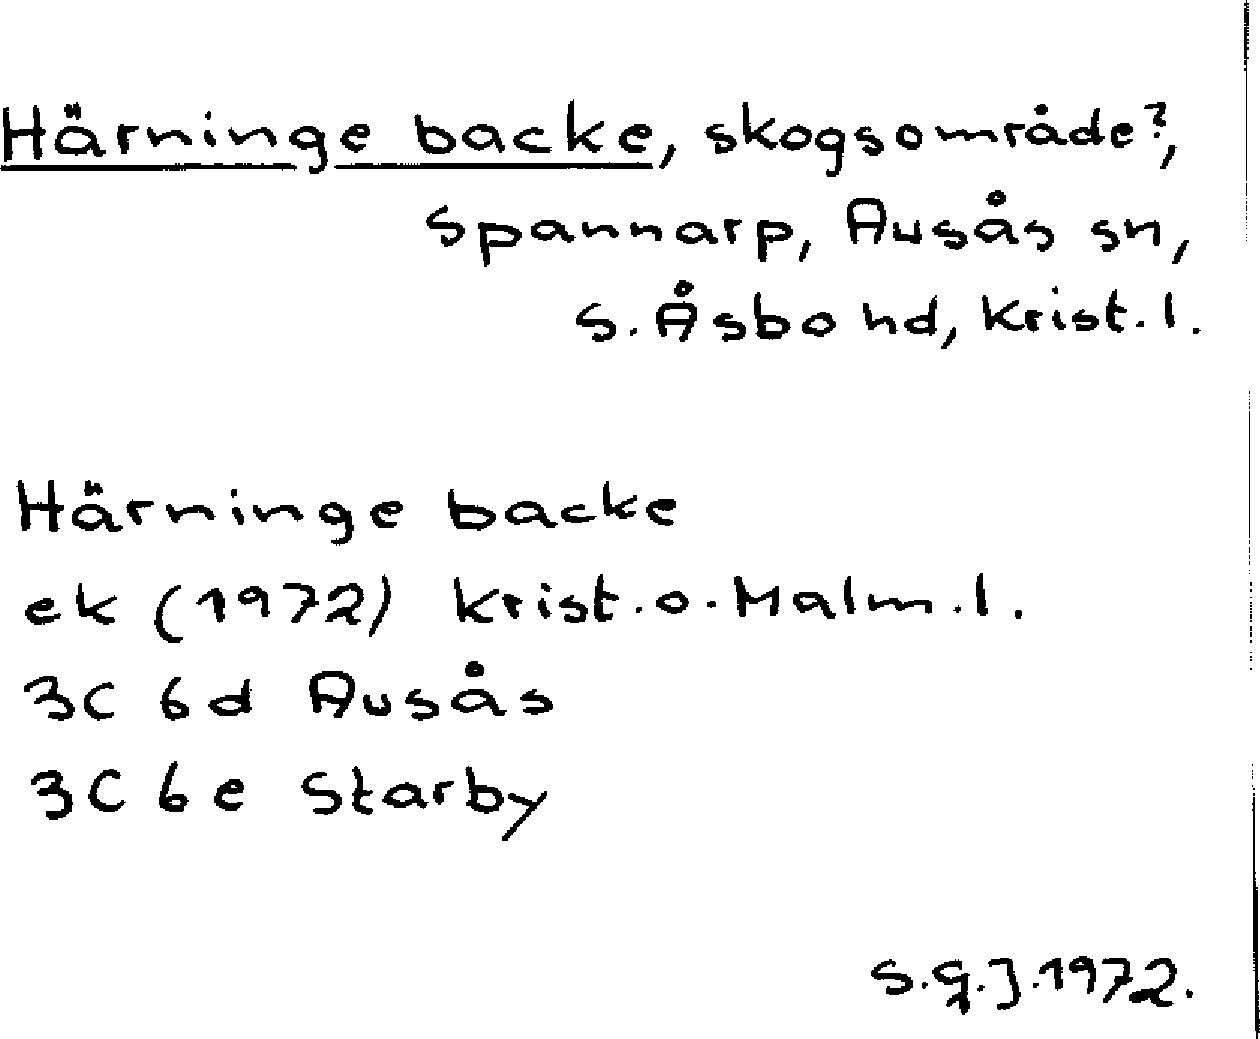 Härninge backe, skogsområde?,
Spannarp, Ausås sn,
S. Åsbo hd, Krist. l.
Härninge backe
ek (1972) Krist. o. Malm. l.
3C 6d Ausås
3C 6e Starby
S.G.J. 1972.